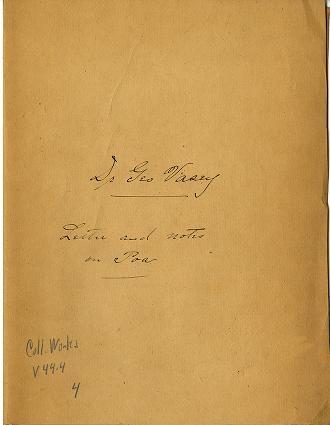 Dr Geo Vasey
Letter and notes
on Poa
Coll. Works
V 44.4
4